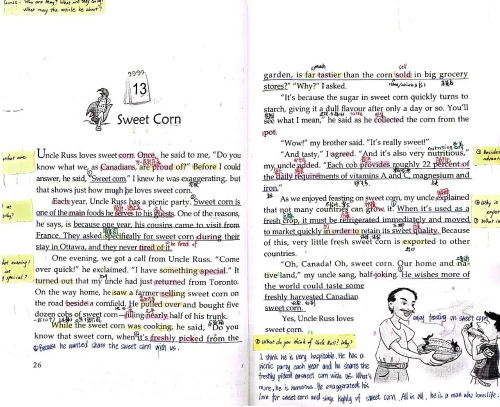 13
Sweet Corn
Uncle Russ loves sweet corn. Once, he said to me, "Do you
know what we, as Canadians, are proud of?" Before I could
answer, he said, "Sweet corn." I knew he was exaggerating, but
that shows just how much he loves sweet corn.
Each year, Uncle Russ has a picnic party. Sweet corn is
one of the main foods he serves to his guests. One of the reasons,
he says, is because one year, his cousins came to visit from
France. They asked specifically for sweet corn during their
stay in Ottawa, and they never tired of it.
One evening, we got a call from Uncle Russ. "Come
over quick!" he exclaimed. "I have something special." It
turned out that my uncle had just returned from Toronto.
On the way home, he saw a farmer selling sweet corn on
the road beside a cornfield. He pulled over and bought five
dozen cobs of sweet corn—filling nearly half of his trunk.
While the sweet corn was cooking, he said, "Do you
know that sweet corn, when it's freshly picked from the
Because he wanted share the sweet corn with us.
26
garden, is far tastier than the corn sold in big grocery
stores?" "Why?" I asked.
"It's because the sugar in sweet corn quickly turns to
starch, giving it a dull flavour after only a day or so. You'll
see what I mean," he said as he collected the corn from the
pot.
"Wow!" my brother said. "It's really sweet!"
"And tasty," I agreed. "And it's also very nutritious,"
my uncle added. "Each cob provides roughly 22 percent of
the daily requirements of vitamins A and C, magnesium and
iron."
As we enjoyed feasting on sweet corn, my uncle explained
that not many countries can grow it. When it's used as a
fresh crop, it must be refrigerated immediately and moved
to market quickly in order to retain its sweet quality. Because
of this, very little fresh sweet corn is exported to other
countries.
"Oh, Canada! Oh, sweet corn. Our home and na-
tive land," my uncle sang, half-joking. He wishes more of
the world could taste some
freshly harvested Canadian
sweet corn.
Yes, Uncle Russ loves
sweet corn.
enjoy feasting on sweet corn
What do you think of Uncle Russ? Why?
I think he is very hospitable. He has a
picnic party each year and he shares the
freshly picked sweet corn with us. What's
more, he is humorous. He exaggerated his
love for sweet corn and sings highly of sweet corn. All in all, he is a man who loves life.